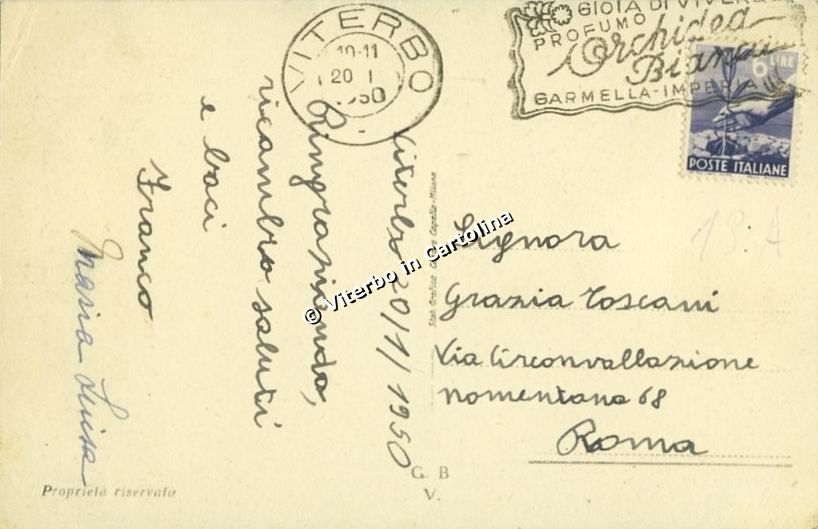 VITERBO
19-11
20 I
1950
GIOIA DI VIVERE
PROFUMO
Orchidea
Bianca
GARMELLA-IMPERIA
6 LIRE
POSTE ITALIANE
Viterbo 20/1/1950
Ringraziando,
ricambio saluti
e baci
Franco
Maria Luisa
Signora
Grazia Toscani
Via Circonvallazione
nomentana 68
Roma
13. A
© Viterbo in Cartolina
G. B
V.
Proprietà riservata